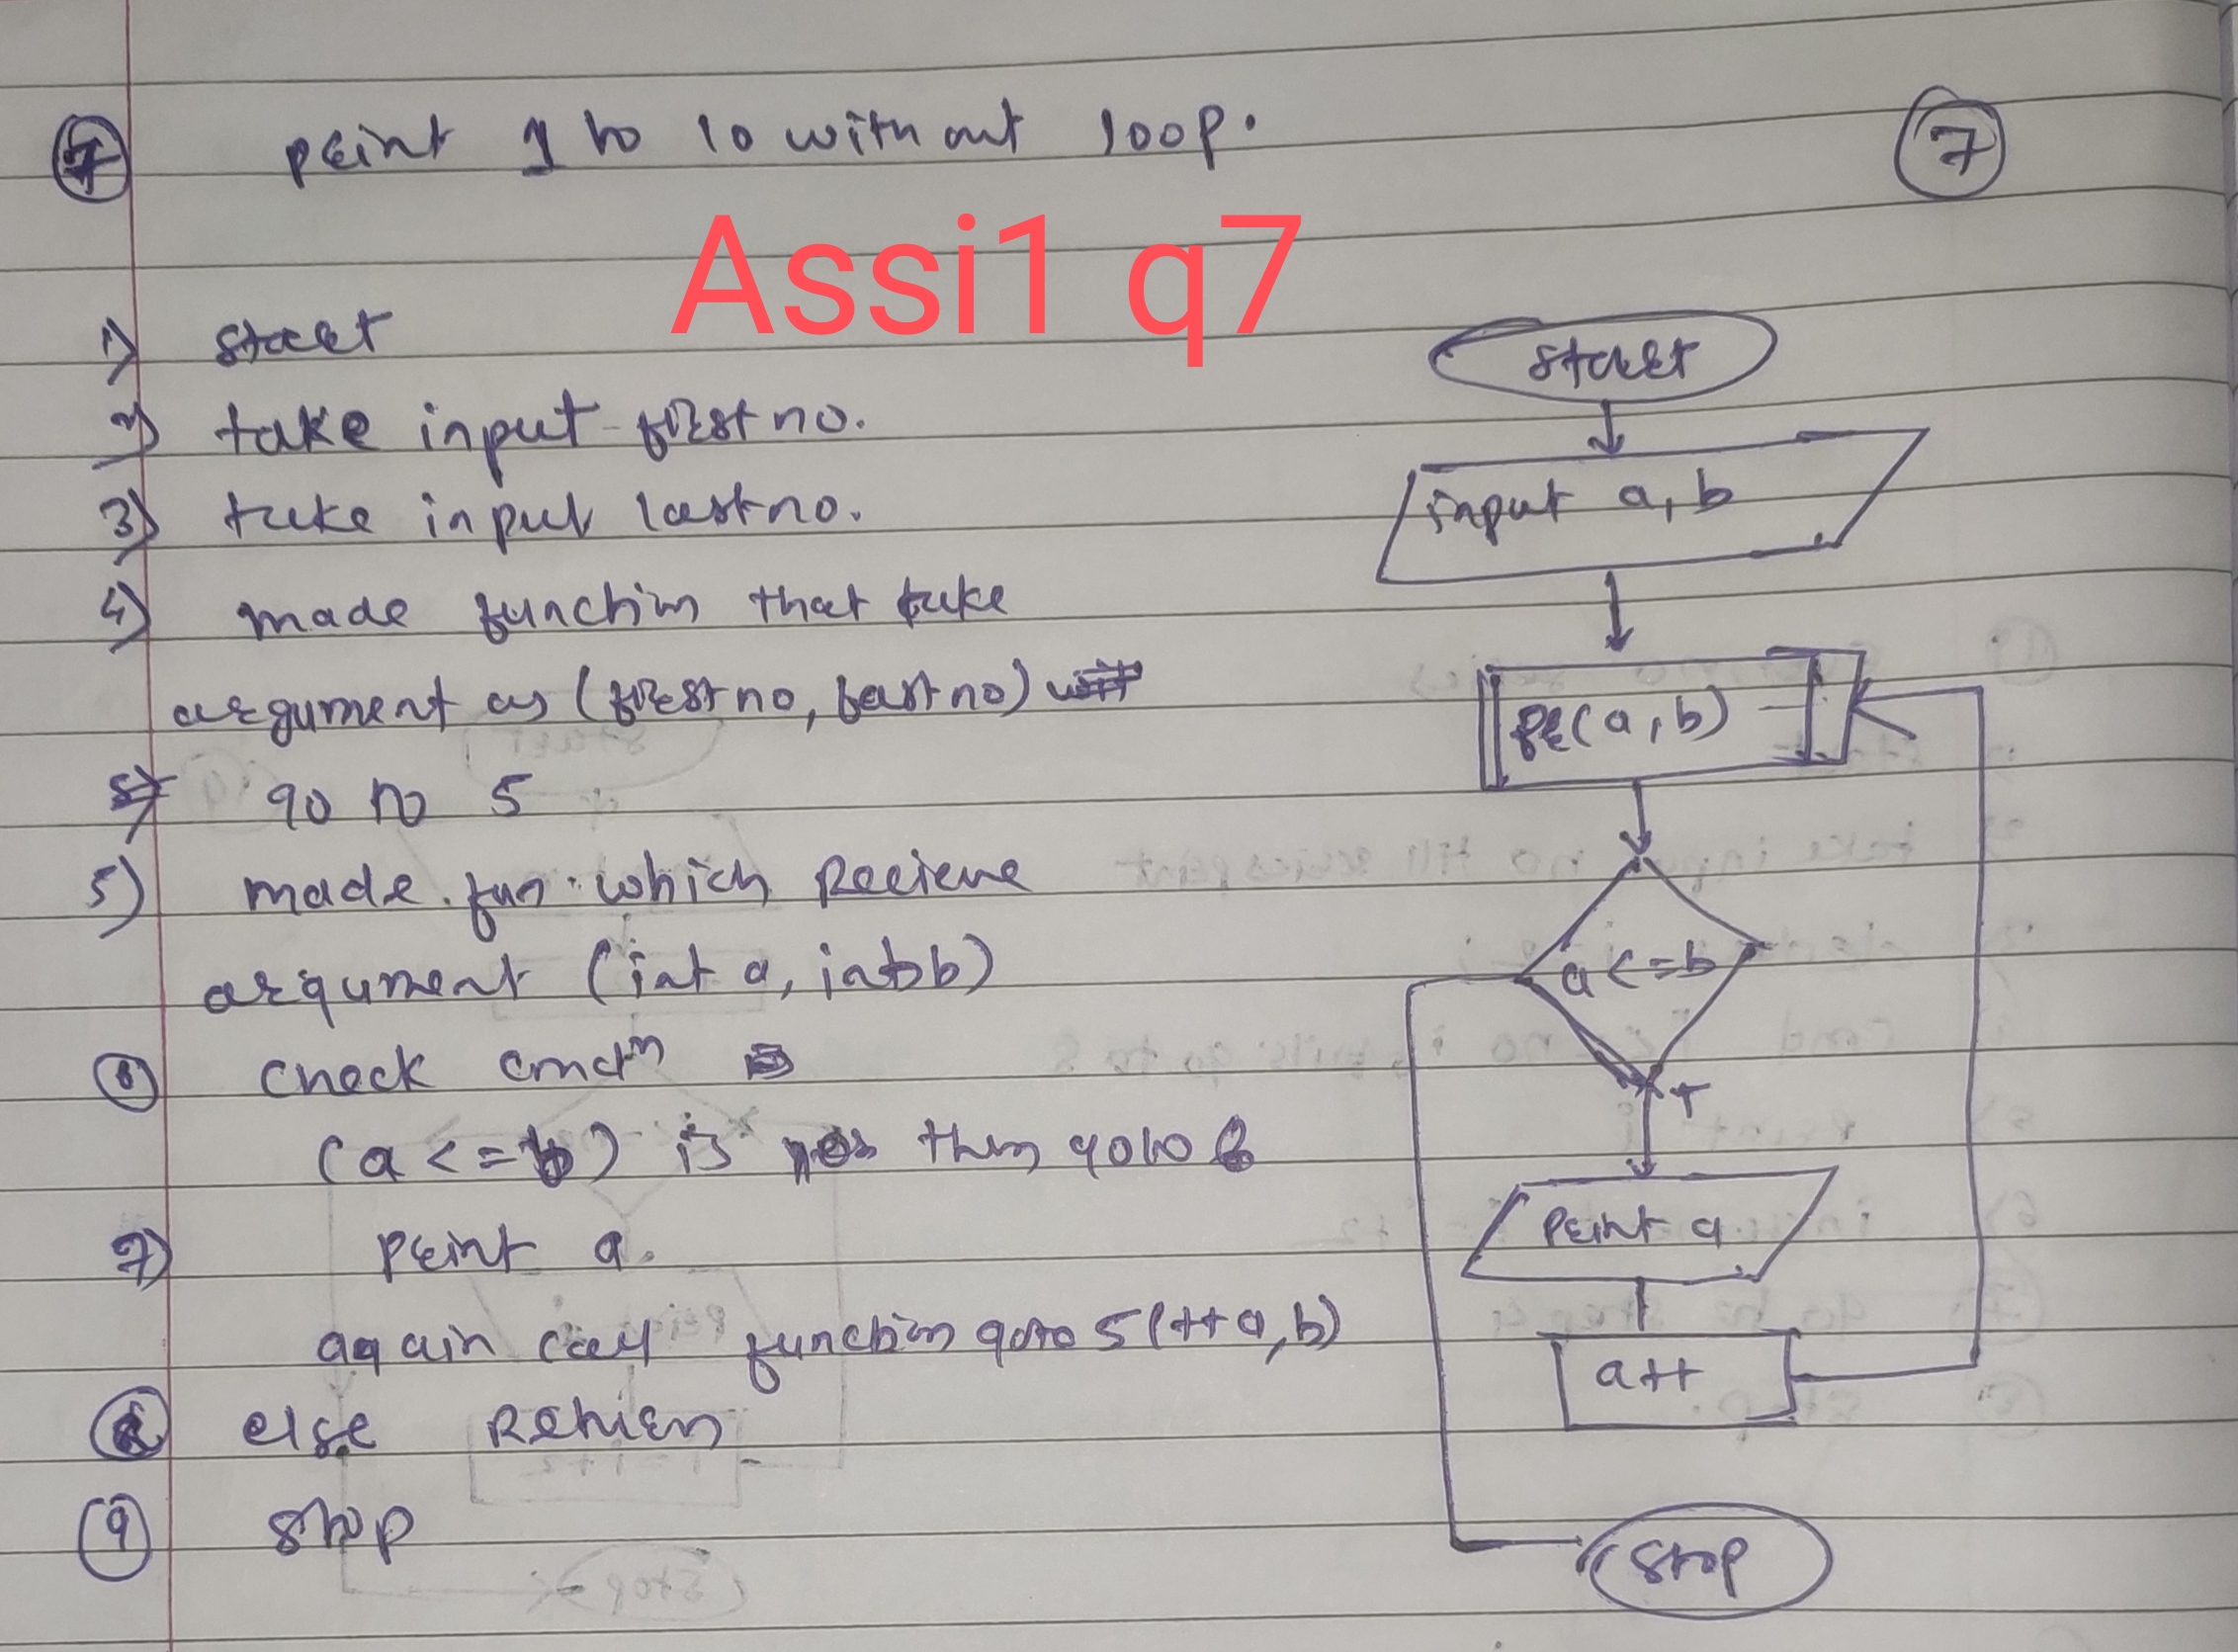 7 print 1 to 10 without loop. 7
Assi1 q7
1) start
2) take input first no.
3) take input last no.
4) made function that take
argument as (first no, last no)
5) go to 5
5) made fun. which Recieve
argument (int a, int b)
6 check condn
(a <= b) is yes then goto 6
7) print a.
again call function goto 5 (++a, b)
8 else Return
9 stop
start
input a, b
(a, b)
a <= b
T
Print a
a++
stop